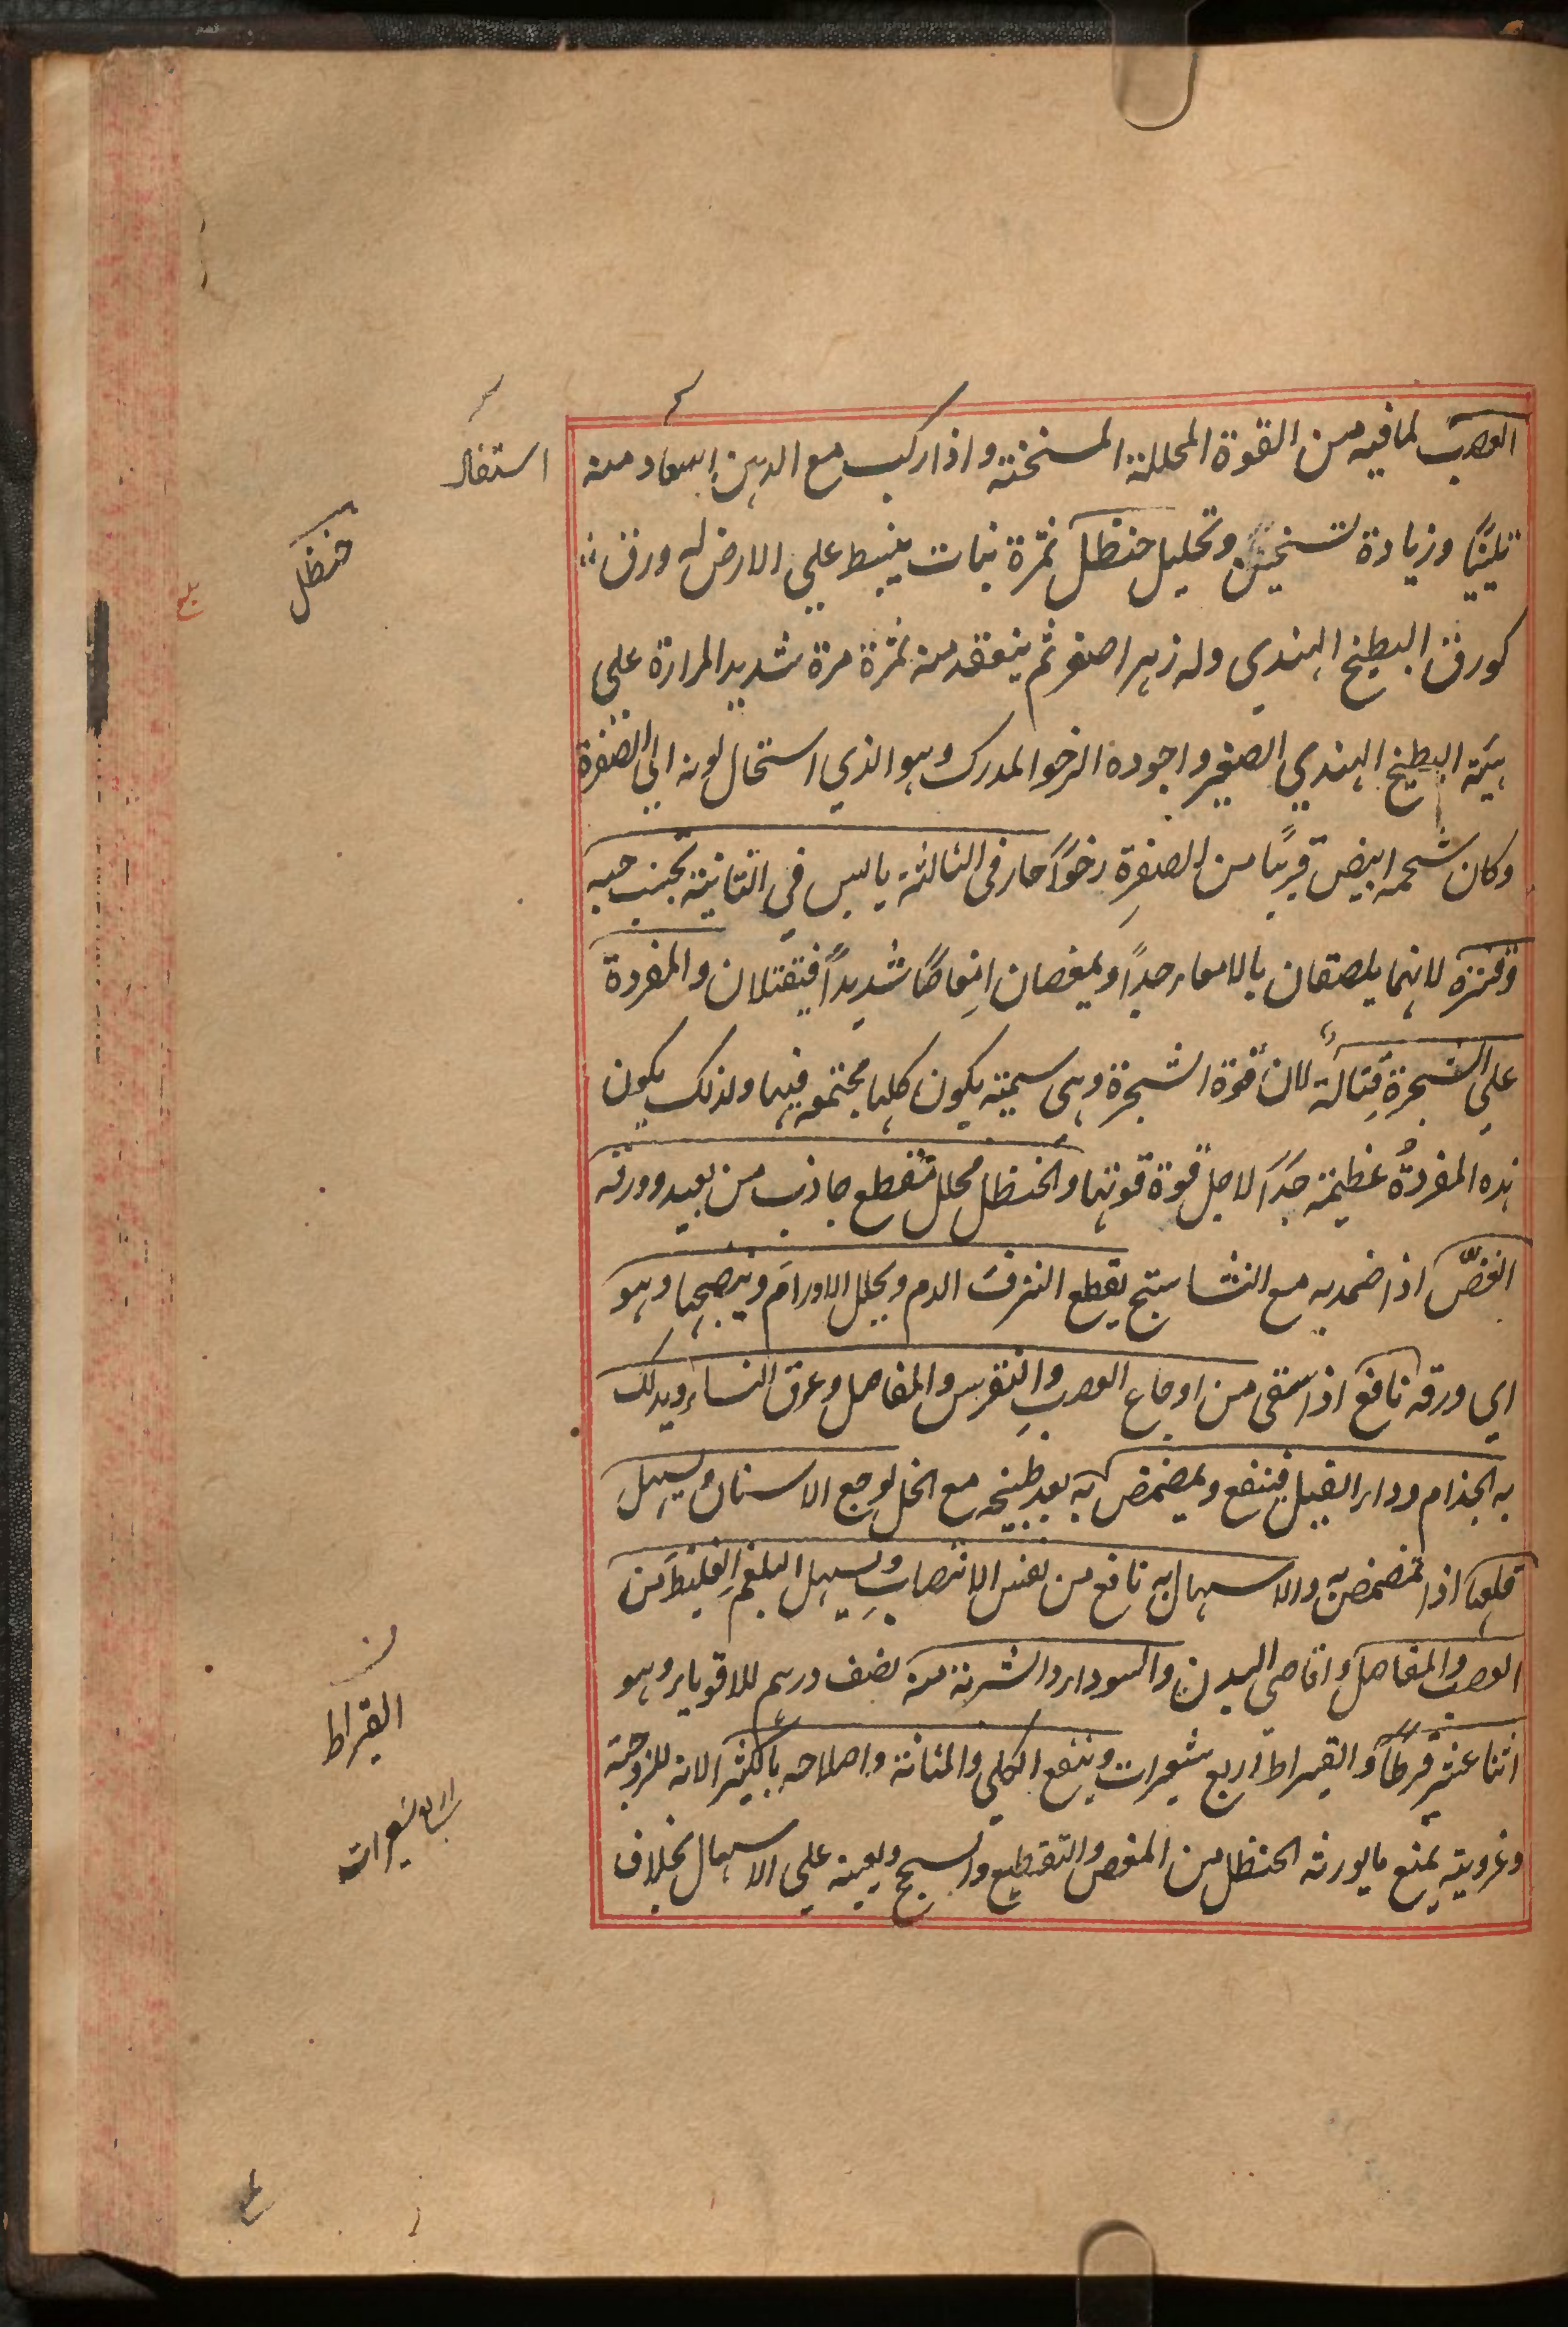 العصب لما فيه من القوة المحللة المسخنة واذا ركب مع الدهن استفاد منه
تليينًا وزيادة تسخين وتحليل حنظل ثمرة نبات ينبسط علي الارض له ورق
كورق البطيخ الهندي وله زهر اصفر ثم ينعقد منه ثمرة مرة شديد المرارة علي
هيئة البطيخ الهندي الصغير واجوده الرخو المدرك وهو الذي استحال لونه الي الصفرة
وكان شحمه ابيض قريبًا من الصفرةِ رخوًا حار في الثالثة يابس في الثانية تجنب حبه
وقشره لانهما يلصقان بالامعاء جدًا ويمغصان امغاصًا شديدًا فيقتلان والمفردة
علي الشجرةِ قتالة لان قوة الشجرة وهي سمية يكون كلها مجتمعه فيها ولذلك يكون
هذه المفردةُ عظيمة جدًا لاجل قوة قوتها والحنظل محلل مقطع جاذب من بعيد وورقه
الغضّ اذا ضمد به مع النشاستج يقطع النزف الدم ويحلل الاورام وينضجها وهو
اي ورقه نافع اذا سقي من اوجاع العصب والنقرس والمفاصل وعرق النساء ويدلك
به الجذام وداء الفيل فينفع ويمضمض به بعد طبخه مع الخل لوجع الاسنان ويسهل
قلعها اذا تمضمض به والاسهال به نافع من نفس الانتصاب ويسهل البلغم الغليظ من
العصب والمفاصل واقاصي البدن والسوداء والشربة منه نصف درهم للاقوياء وهو
اثنا عشر قرطًا والقيراط اربع شعيرات وينفع الكلي والمثانة واصلاحه بالكثيرا لانه للزوجته
وغرويته يمنع ما يورثه الحنظل من المغص والتقطيع والسحج ويعينه علي الاسهال بخلاف
استفاد
حنظل
القيراط
اربع شعيرات